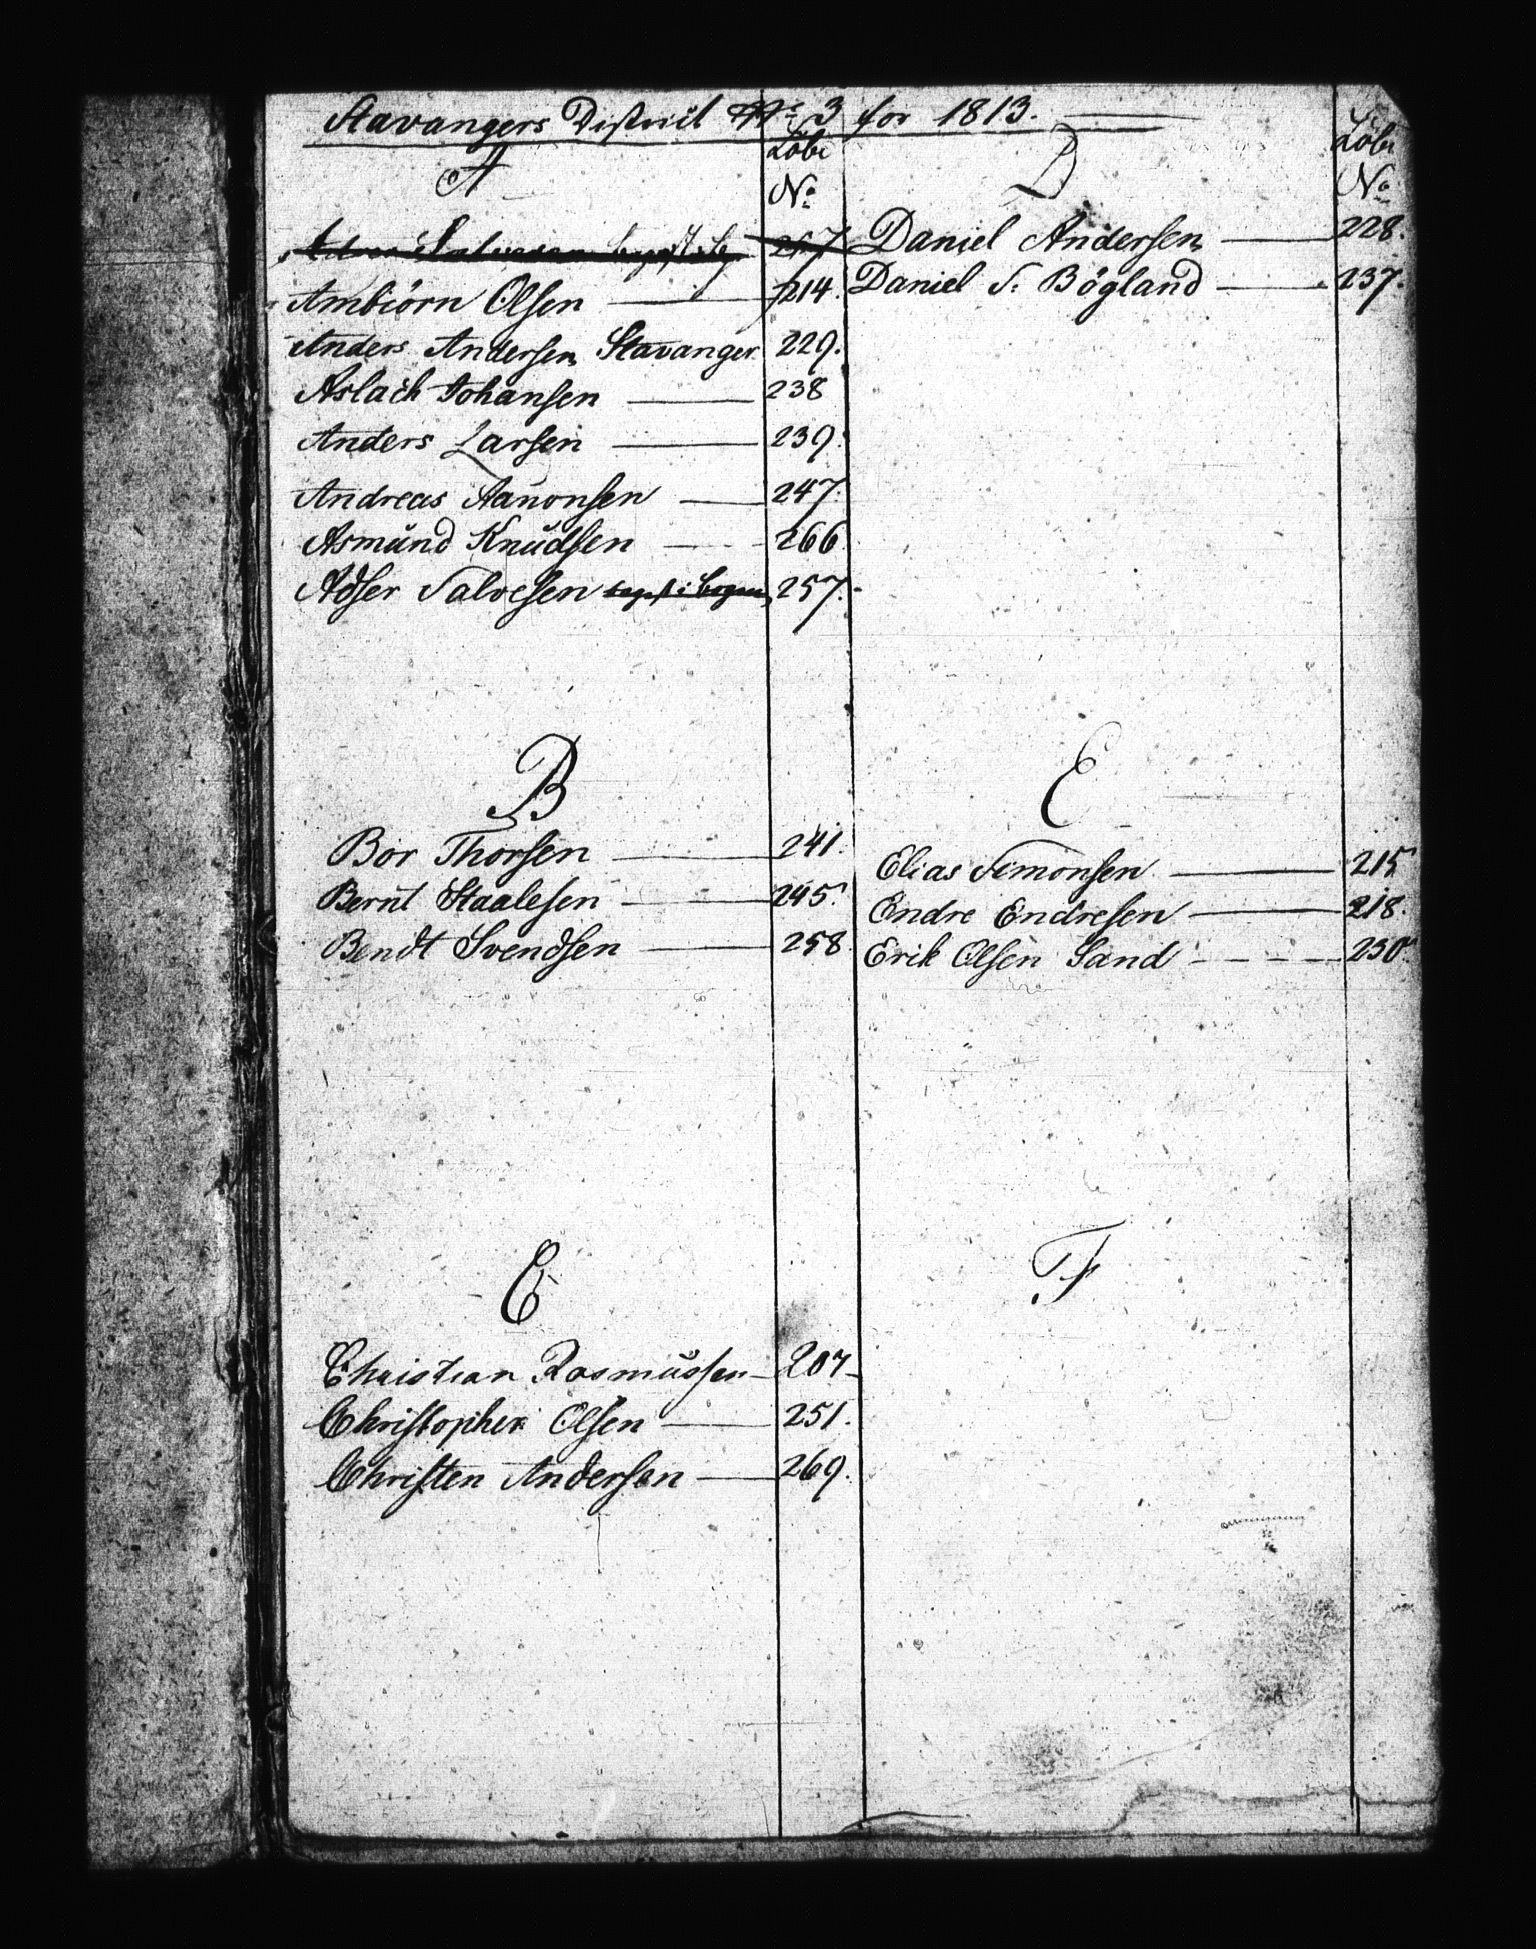 Stavangers District No 3 for 1813.
A
Löbe
No
257
Ambiörn Olsen 214.
Anders Andersen Stavanger 229.
Aslach Johansen 238
Anders Larsen 239.
Andreas Aanonsen 247.
Asmund Knudsen 266
Adser Salvesen 257.
B
Bor Thorsen 241.
Bernt Staalesen 245.
Bendt Svendsen 258
C
Christian Rasmussen 207
Christopher Olsen 251.
Christen Andersen 269.
D
Löbe
No
Daniel Andersen 228.
Daniel S. Bögland 237.
E
Elias Simonsen 215
Endre Endresen 218.
Erik Olsen Sand 230.
F